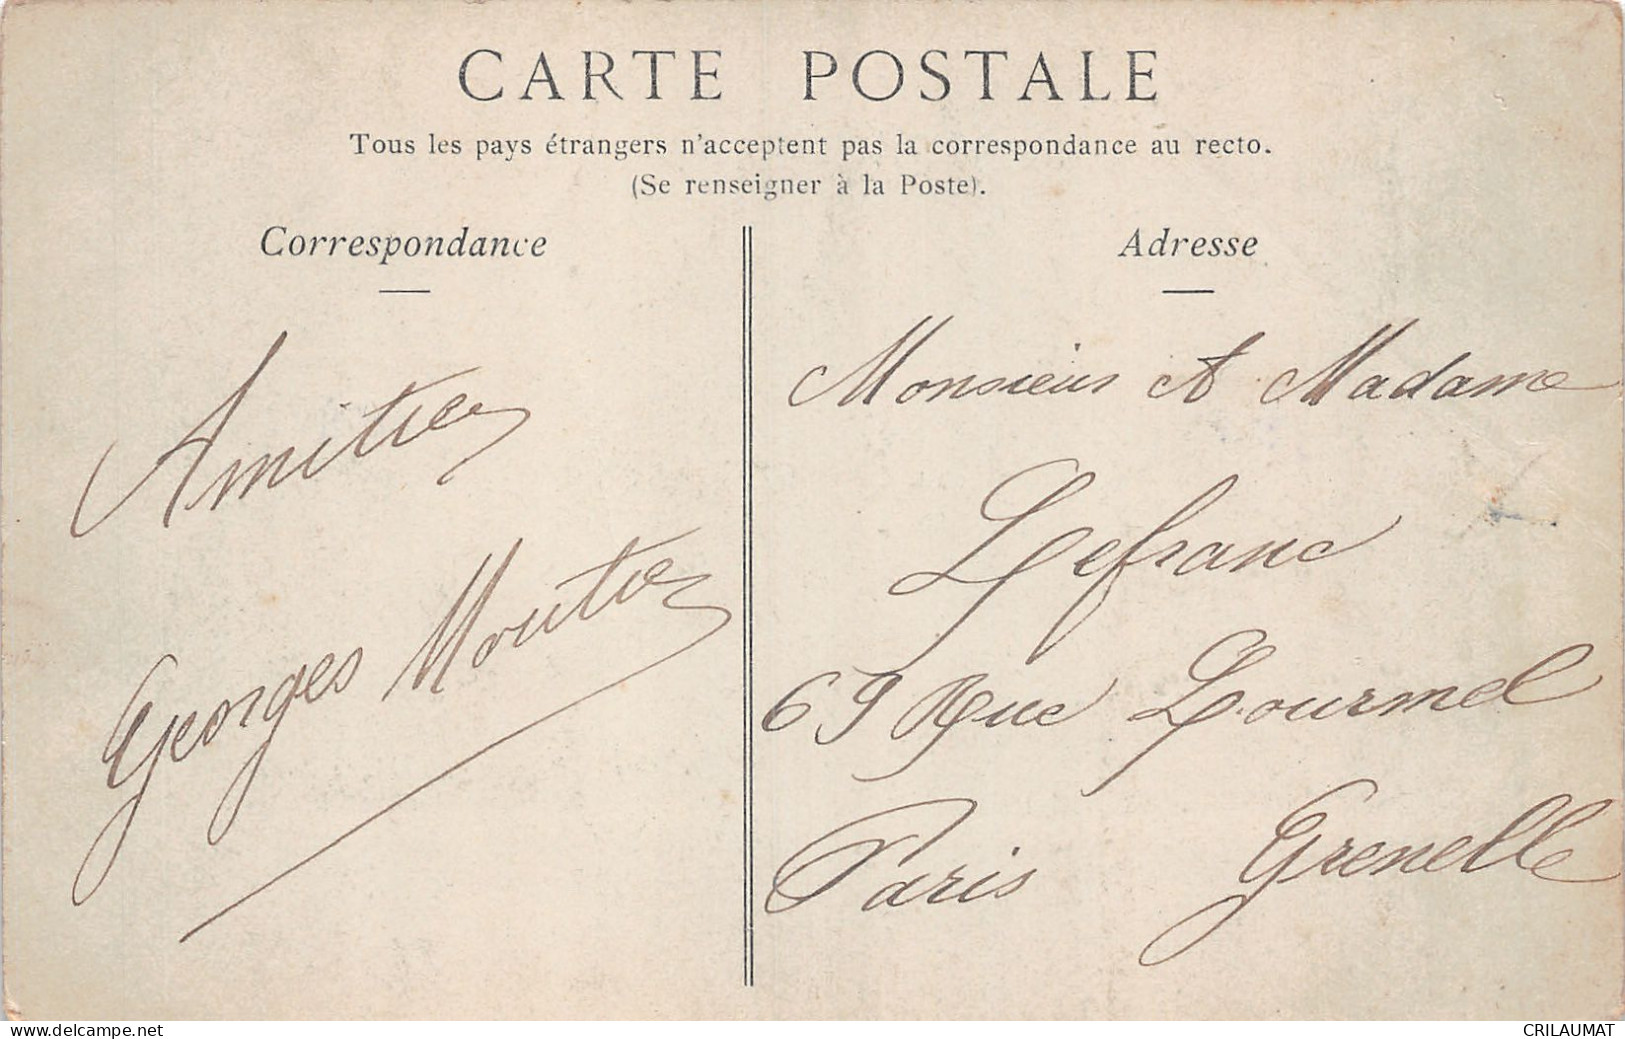 CARTE POSTALE
Tous les pays étrangers n'acceptent pas la correspondance au recto.
(Se renseigner à la Poste).
Correspondance
Amitiés
Georges
Adresse
Monsieur et Madame
Lefranc
69 Rue Lourmel
Paris Grenelle
www.delcampe.net
CRILAUMAT